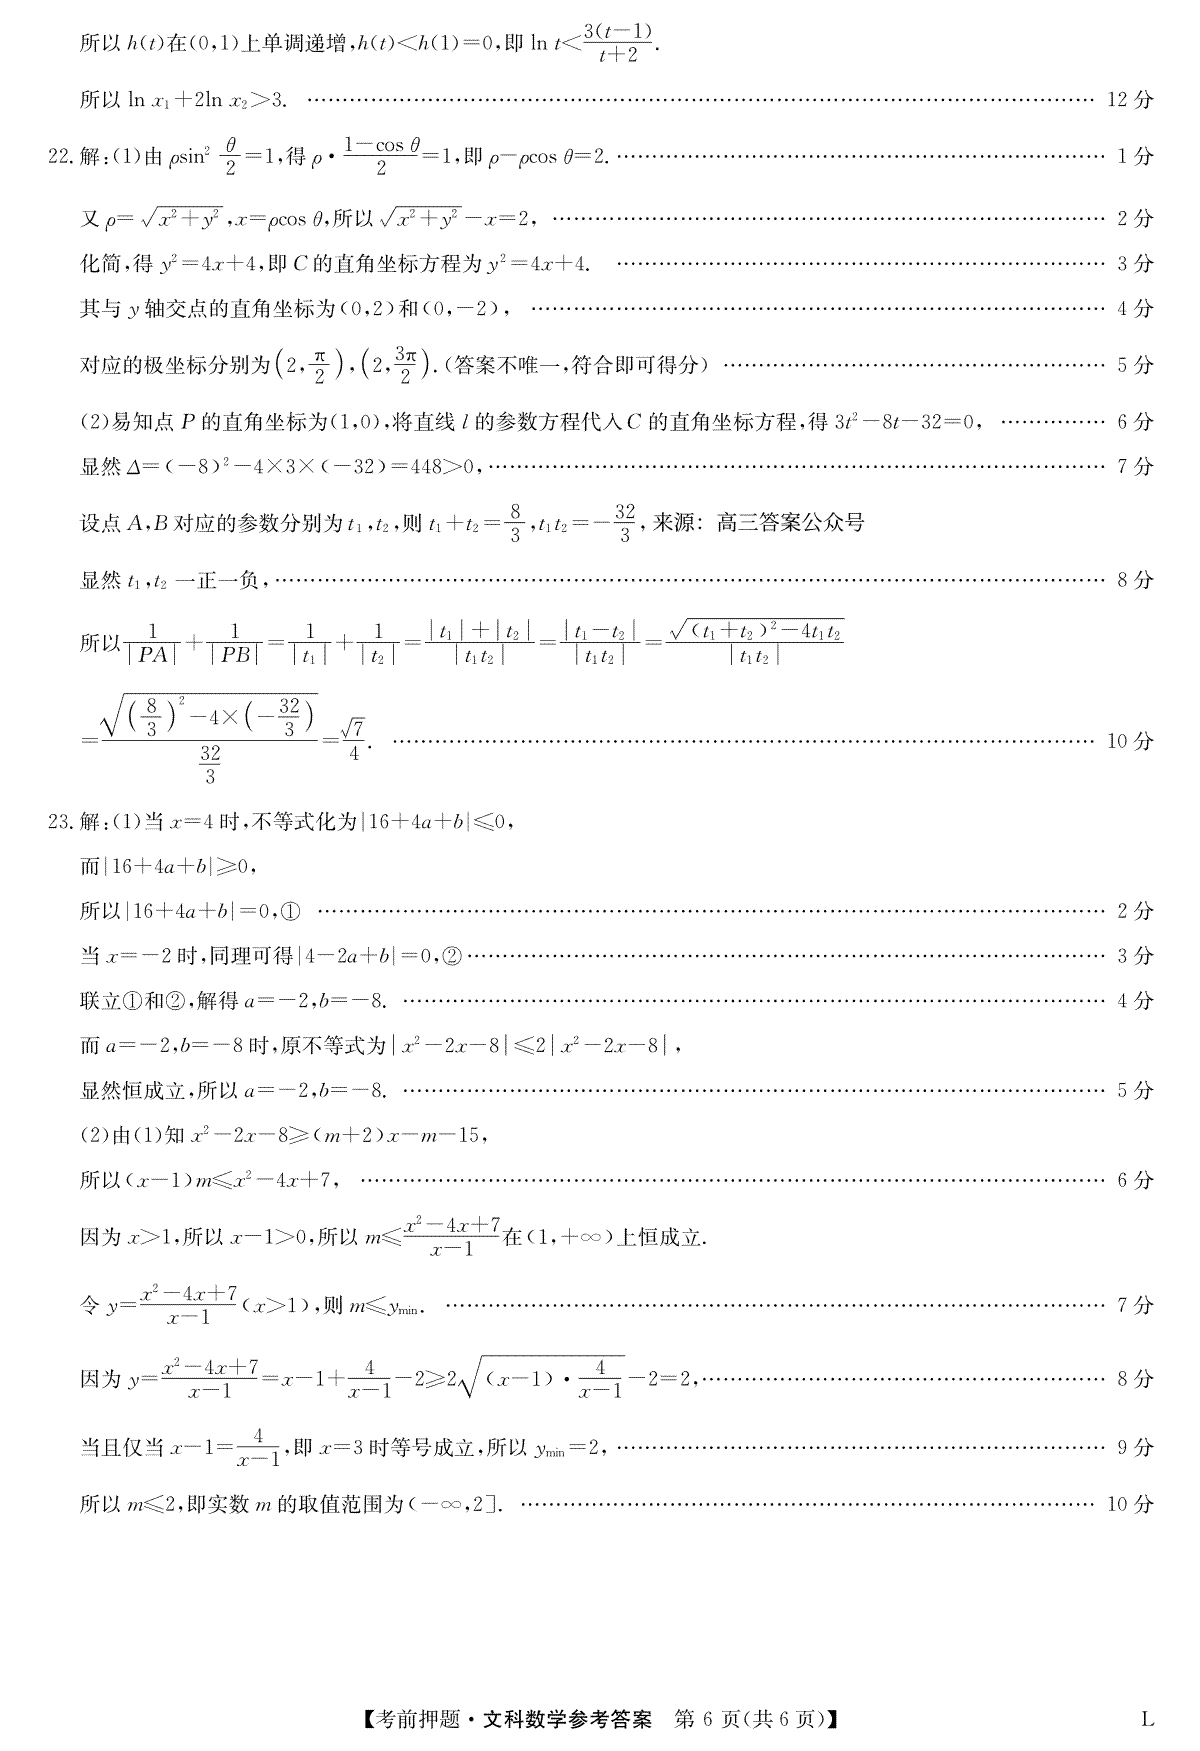 所以 h(t)在(0,1)上单调递增,h(t)<h(1)=0,即 ln t<\frac{3(t-1)}{t+2}.
所以 ln x₁+2ln x₂>3. …… 12 分
22.解:(1)由 ρsin² \frac{θ}{2}=1,得 ρ·\frac{1-cos θ}{2}=1,即 ρ-ρcos θ=2. …… 1 分
又 ρ=\sqrt{x²+y²},x=ρcos θ,所以 \sqrt{x²+y²}-x=2, …… 2 分
化简,得 y²=4x+4,即 C 的直角坐标方程为 y²=4x+4. …… 3 分
其与 y 轴交点的直角坐标为(0,2)和(0,-2), …… 4 分
对应的极坐标分别为(2,\frac{π}{2}),(2,\frac{3π}{2}).(答案不唯一,符合即可得分) …… 5 分
(2)易知点 P 的直角坐标为(1,0),将直线 l 的参数方程代入C 的直角坐标方程,得 3t²-8t-32=0, …… 6 分
显然 Δ=(-8)²-4×3×(-32)=448>0, …… 7 分
设点 A,B 对应的参数分别为 t₁,t₂,则 t₁+t₂=\frac{8}{3},t₁t₂=-\frac{32}{3}, 来源：高三答案公众号
显然 t₁,t₂ 一正一负, …… 8 分
所以\frac{1}{|PA|}+\frac{1}{|PB|}=\frac{1}{|t₁|}+\frac{1}{|t₂|}=\frac{|t₁|+|t₂|}{|t₁t₂|}=\frac{|t₁-t₂|}{|t₁t₂|}=\frac{\sqrt{(t₁+t₂)²-4t₁t₂}}{|t₁t₂|}
=\frac{\sqrt{(\frac{8}{3})²-4×(-\frac{32}{3})}}{\frac{32}{3}}=\frac{\sqrt{7}}{4}. …… 10 分
23.解:(1)当 x=4 时,不等式化为|16+4a+b|≤0,
而|16+4a+b|≥0,
所以|16+4a+b|=0,① …… 2 分
当 x=-2 时,同理可得|4-2a+b|=0,② …… 3 分
联立①和②,解得 a=-2,b=-8. …… 4 分
而 a=-2,b=-8 时,原不等式为|x²-2x-8|≤2|x²-2x-8|,
显然恒成立,所以 a=-2,b=-8. …… 5 分
(2)由(1)知 x²-2x-8≥(m+2)x-m-15,
所以(x-1)m≤x²-4x+7, …… 6 分
因为 x>1,所以 x-1>0,所以 m≤\frac{x²-4x+7}{x-1}在(1,+∞)上恒成立.
令 y=\frac{x²-4x+7}{x-1}(x>1),则 m≤y_{min}. …… 7 分
因为 y=\frac{x²-4x+7}{x-1}=x-1+\frac{4}{x-1}-2≥2\sqrt{(x-1)·\frac{4}{x-1}}-2=2, …… 8 分
当且仅当 x-1=\frac{4}{x-1},即 x=3 时等号成立,所以 y_{min}=2, …… 9 分
所以 m≤2,即实数 m 的取值范围为(-∞,2]. …… 10 分
【考前押题·文科数学参考答案 第 6 页(共 6 页)】 L